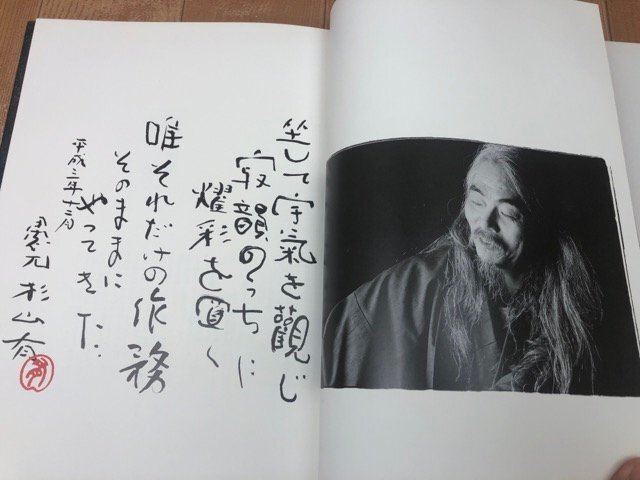 坐して宇氣を觀じ
寂韻のうちに
耀彩を圓く
唯それだけの作務
そのままに
やってきた
平成三年十二月
杉山